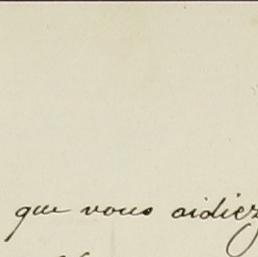 que vous aidiez